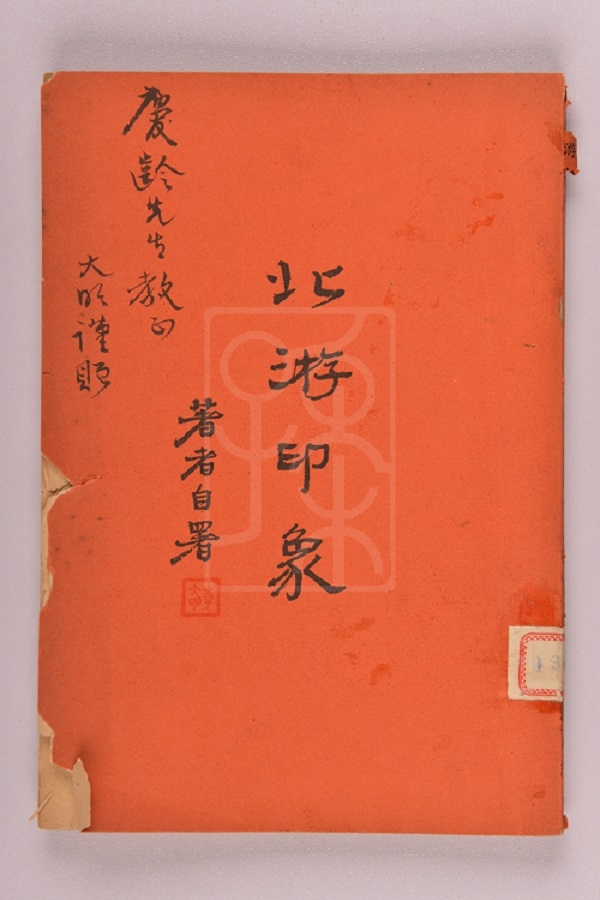 北游印象
著者自署
慶齡先生教正
大明謹贈